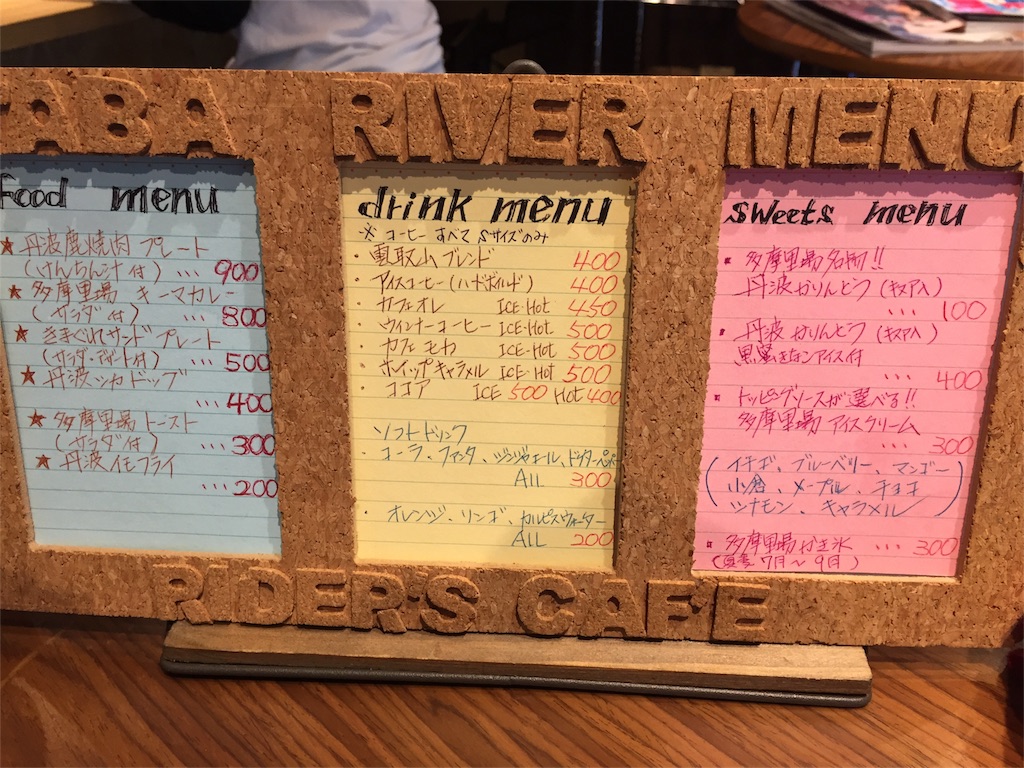 ABA RIVER MENU
food menu
★丹波鹿焼肉プレート
(けんちん汁付) ... 900
★多摩里場 キーマカレー
(サラダ付) ... 800
★きまぐれサンドプレート
(サラダ・デザート付) ... 500
★丹波シカドッグ
... 400
★多摩里場トースト
(サラダ付) ... 300
★丹波イモフライ
... 200
drink menu
※コーヒーすべてSサイズのみ
・雲取山ブレンド 400
・アイスコーヒー(ハードボイルド) 400
・カフェオレ ICE・Hot 450
・ウィンナーコーヒー ICE・Hot 500
・カフェモカ ICE・Hot 500
・ホイップキャラメル ICE・Hot 500
・ココア ICE 500 Hot 400
ソフトドリンク
・コーラ、ファンタ、ジンジャエール、ドクターペッパー
ALL 300
・オレンジ、リンゴ、カルピスウォーター
ALL 200
sweets menu
多摩里場名物!!
丹波かりんとう(キヌア入)
... 100
丹波かりんとう(キヌア入)
黒蜜きなこアイス付
... 400
トッピングソースが選べる!!
多摩里場アイスクリーム
... 300
(イチゴ、ブルーベリー、マンゴー
小倉、メープル、チョコ
シナモン、キャラメル)
多摩里場かき氷 ... 300
(夏季 7月〜9月)
RIDER'S CAFE